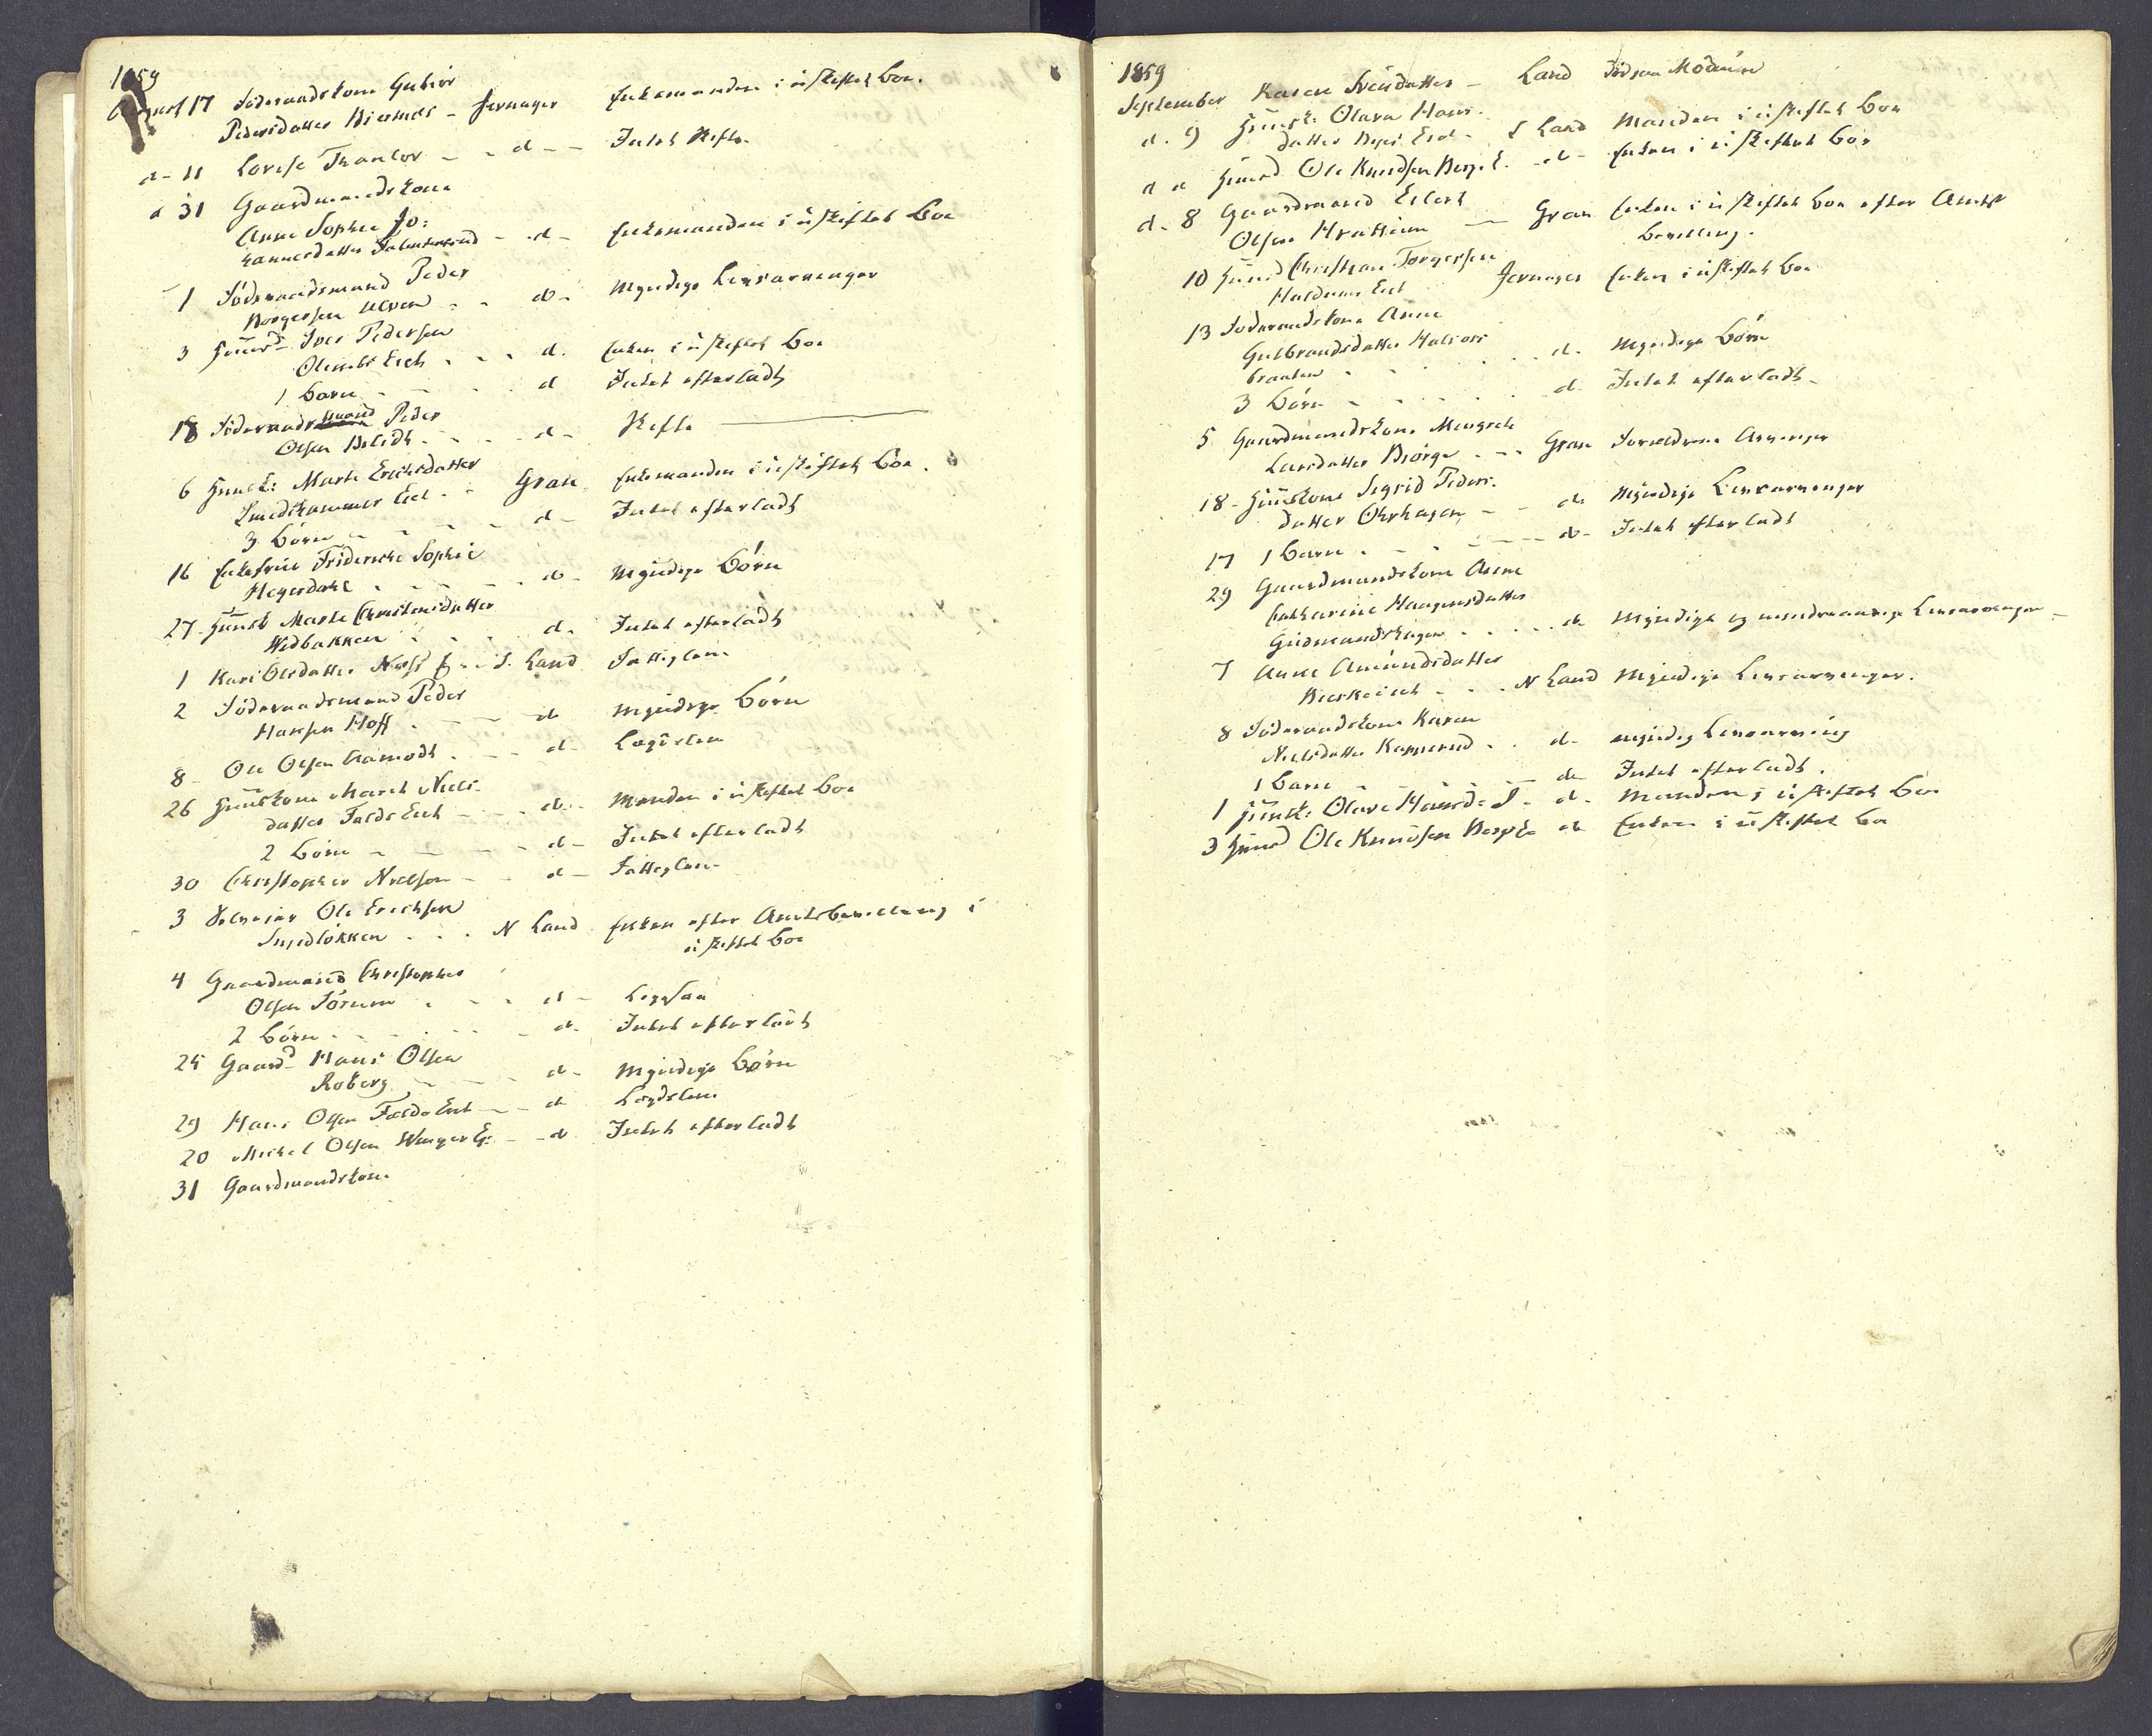 1859
August 17 Föderaadskone Gubiør
Pedersdatter Biermes - Jevnager Enkemanden i uskiftet Boe.
d - 11 Lovise Thanlov - - d - - Intet Skifte
d 31 Gaardmandskone
Anne Sophie Jo:
hannesdatter - d - Enkemanden i uskiftet Boe
1 Föderaadsmand Peder
Borgersen Ulven - - d - Myndige Livsarvinger
3 Huusmd Iver Pedersen
Olimb Eich - - - d. Enken i uskiftet Boe
1 Barn - - - - d Intet efterladt
18 Föderaadsmand Peder
Olsen - - - d - Skifte
6 Huusk: Marte Erichsdatter
Smedshammer Eich - - Gran Enkemanden i uskiftet Boe.
3 Börn - - - - d - Intet efterladt
16 Enkefrue Frideriche Sophie
Hegerdahl - - - - d - Myndige Börn
27 - Huusk Marte Christensdatter
Hvidbakken - - - - d. Intet efterladt
1 Kari Olsdatter Næss E - S. Land Fattiglem
2 Föderaadsmand Peder
Hansen Hoff - - - d Myndige Börn
8 - Ole Olsen Aamodt - - d - Lægdslem
26 Huuskone Marit Niels-
datter Falds Eich - - - d - Manden i uskiftet Boe
2 Börn - - - - d - Intet efterladt
30 Christopher Nielsen - - d - Fattiglem
3 Selveier Ole Erichsen
Smedløkken - - - N Land Enken efter Amtsbevilling i
uskiftet Boe
4 Gaardmand Christopher
Olsen Förum - - - d -
2 Börn - - - - d - Intet efterladt
24 Gaardmd Hans Olsen
Roberg - - - d - Myndige Börn
29 Hans Olsen Falds Eich - - d Lægdslem
20 Michel Olsen - - d Intet efterladt
31 Gaardmandskone
1859
September Karen Svendsdatter - Land
d. 9 Huusk: Olava Hans-
datter Berg Eie - S Land Manden i uskiftet Boe
d d Huusmd Ole Knudsen Berg E. - d - Enken i uskiftet Boe
d. 8 Gaardmand Eilert
Olsen - Gran Enken i uskiftet Boe efter Amts
bevilling.
10 Huusmd Christian Torgersen
Haldum Eie Jevnager Enken i uskiftet Boe
13 Föderaadskone Anne
Gulbrandsdatter
Braaten - - - - d. Myndige Börn
3 Börn - - - - d. Intet efterladt -
5 Gaardmandskone Mengreth
Larsdatter Biörge - - - Gran Foreldrene Arvinger
18 - Huuskone Sigrid Peders-
datter Ohrhagen - - d. Myndige Livsarvinger
17 1 Barn - - - - - d - Intet efterladt
29 Gaardmandskone Anne
Catharine Haagensdatter
Gudmandshagen - - - - d Myndige og mindreaarige Livsarvinger -
7 Anne Amundsdatter
- - - N Land Myndige Livsarvinger.
8 Föderaadskone Karen
Nielsdatter Kapperud - - d - myndig Livsarving
1 Barn - - - - d - Intet efterladt.
1 Huusk: Olave - d - Manden i uskiftet Boe
3 Huusmd Ole Knudsen Berg E d Enken i uskiftet Boe